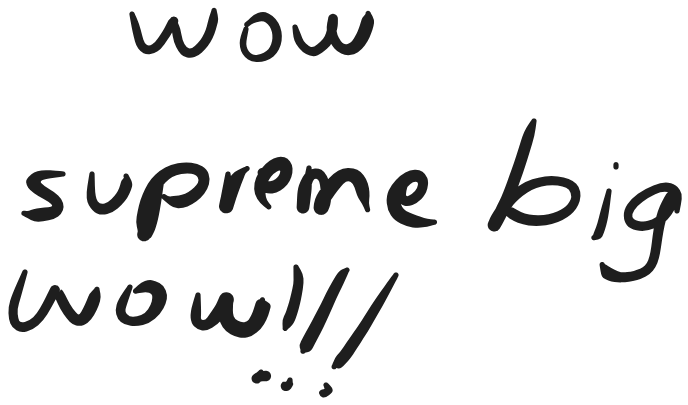 wow
supreme big
wow!!!